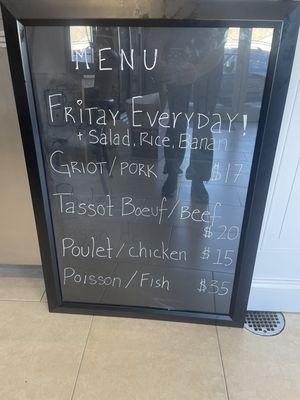 MENU
FRITAY EVERYDAY!
+ SALAD, RICE, BANAN
GRIOT/PORK $17
TASSOT BOEUF/BEEF
$20
POULET/CHICKEN $15
POISSON/FISH $35